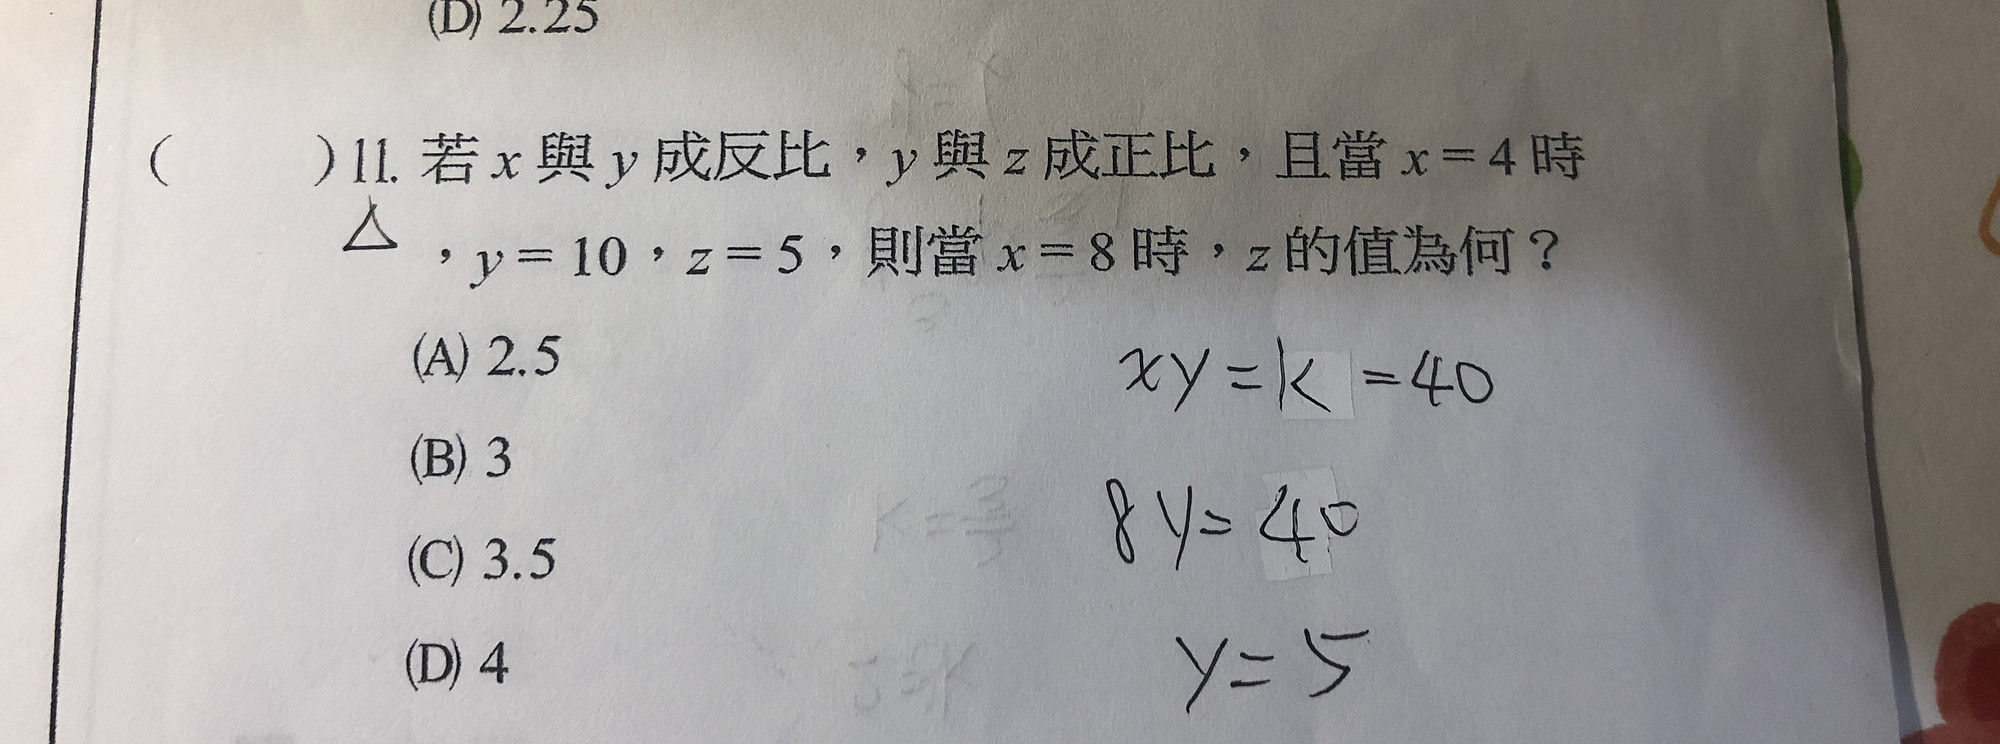 (D) 2.25
(　　)11. 若 x 與 y 成反比，y 與 z 成正比，且當 x = 4 時
△
，y = 10，z = 5，則當 x = 8 時，z 的值為何？
(A) 2.5
xy = k = 40
(B) 3
8y = 40
(C) 3.5
(D) 4
y = 5